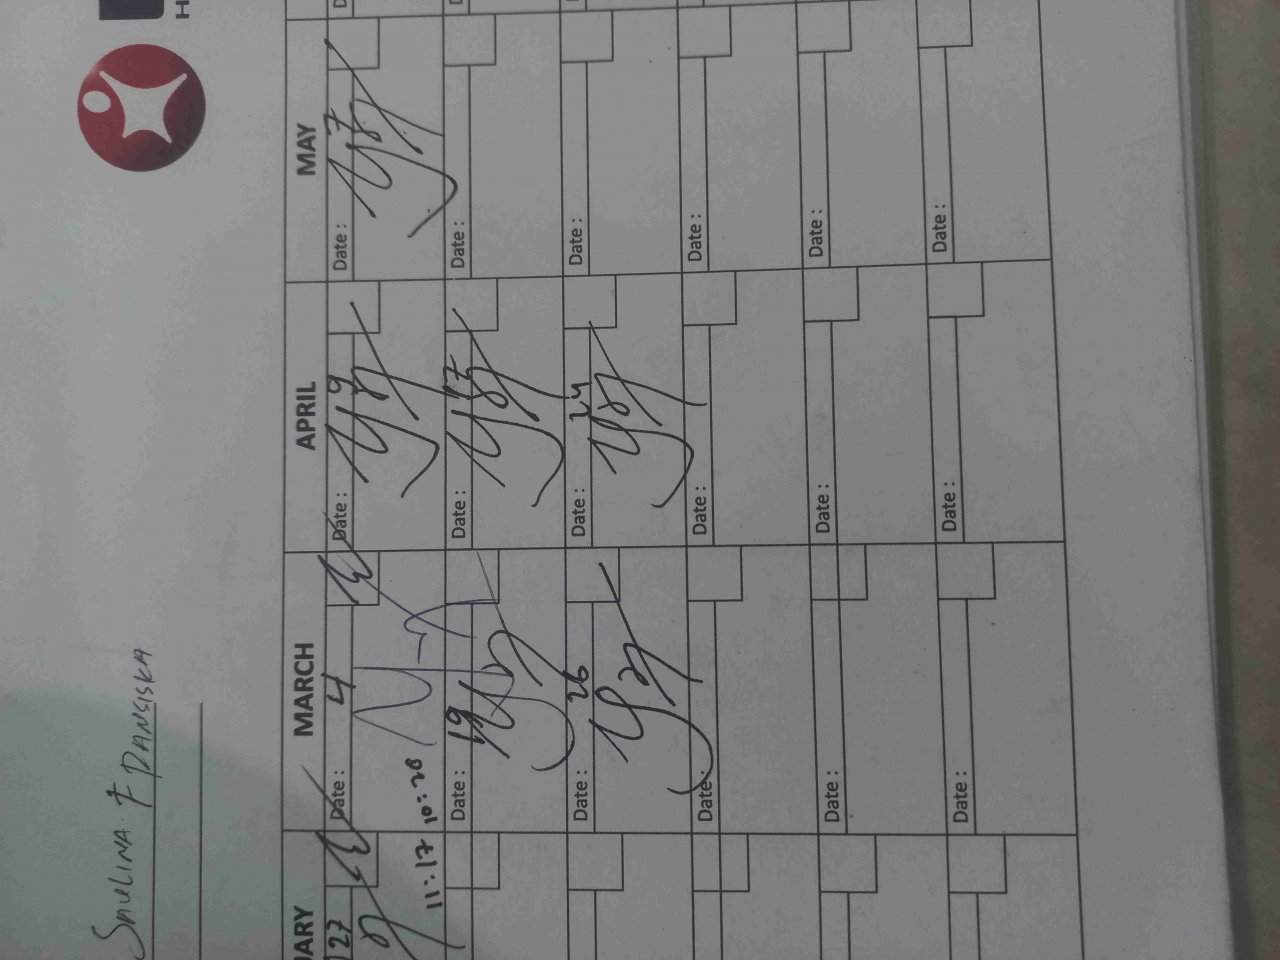 SAULINA. F DANSISKA
H
UARY MARCH APRIL MAY
27 Date : 4 Date : 9 Date : 7
11:17 10:28
Date : 19 Date : 17 Date :
Date : 26 Date : 24 Date :
Date : Date : Date :
Date : Date : Date :
Date : Date : Date :